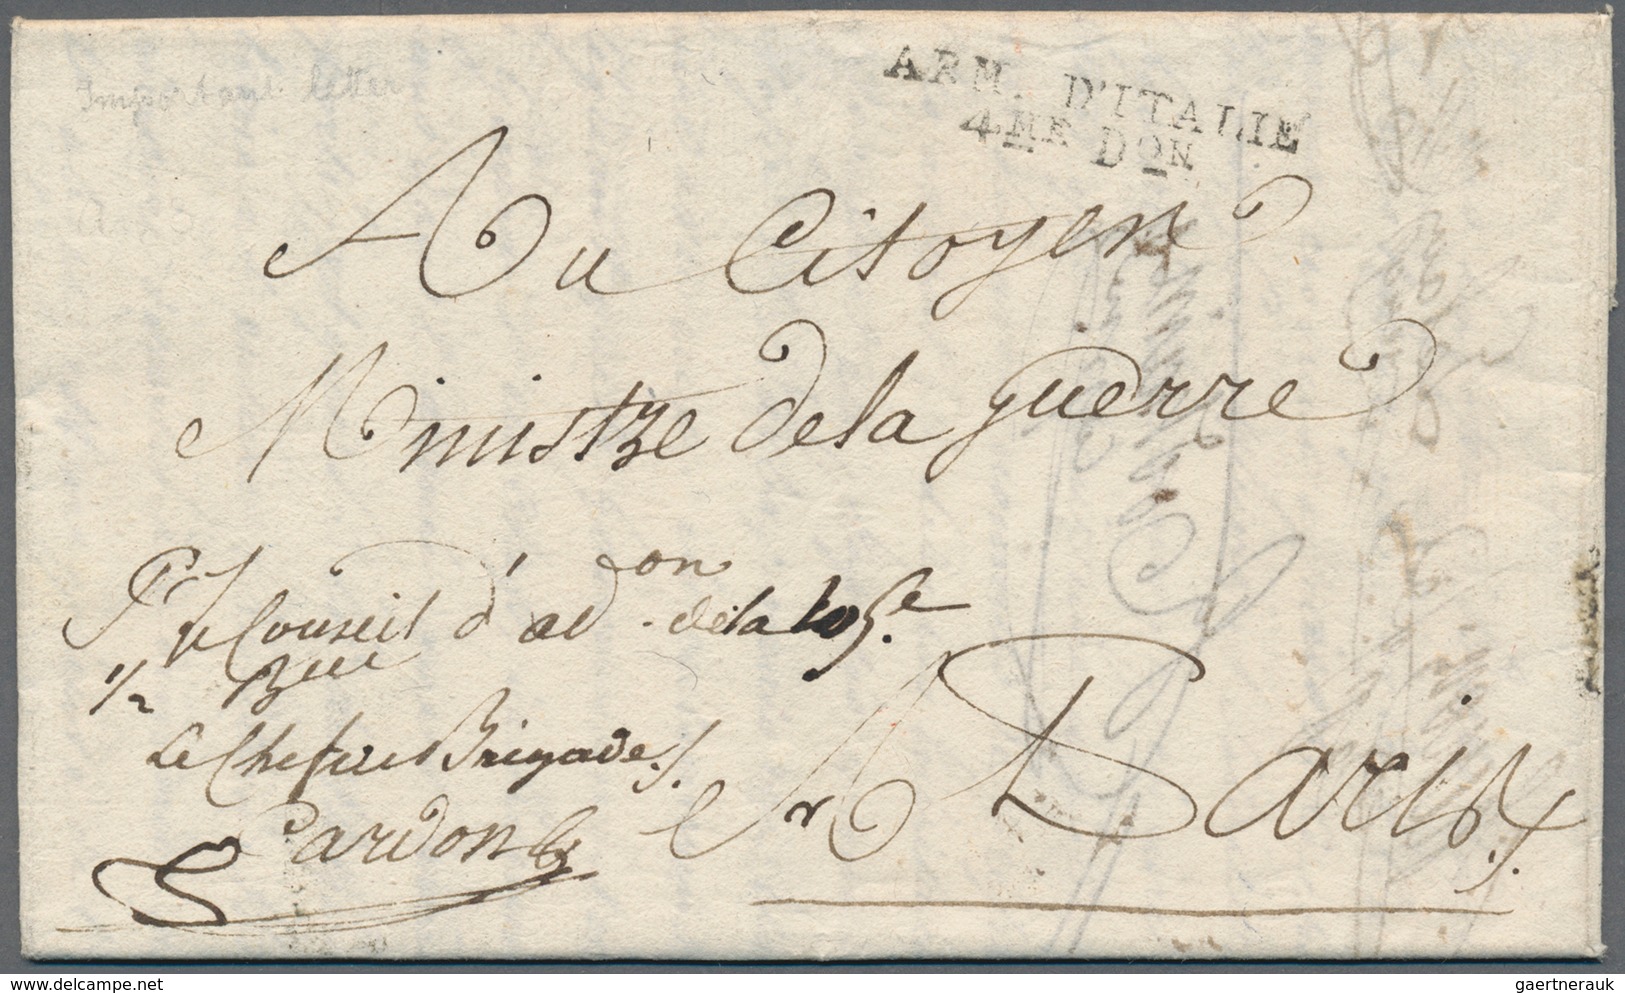 Important letter
ARM. D'ITALIE
4.ME DON
Au Citoyen
Ministre de la guerre
Pr le Conseil d'adon de la 105e.
1/2 Bde
Le Chef de Brigade
Cardon
A Paris
delcampe.net
gaertnerauk